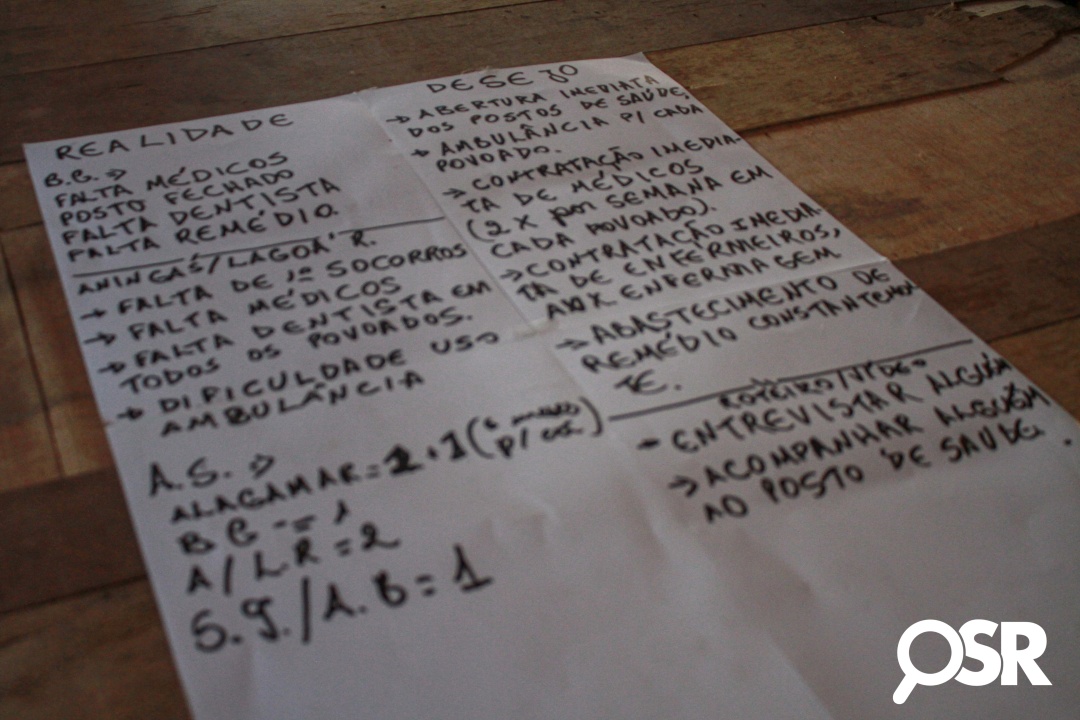 REALIDADE
B.G. →
FALTA MÉDICOS
POSTO FECHADO
FALTA DENTISTA
FALTA REMÉDIO.
ANINGAS/LAGOA R.
→ FALTA DE 1º SOCORROS
→ FALTA MÉDICOS
→ FALTA DENTISTA EM
TODOS OS POVOADOS.
→ DIFICULDADE USO
AMBULÂNCIA
A.S. →
ALAGAMAR = 1
B G = 1
A/LR = 2
S.J./A.B = 1
DESEJO
→ ABERTURA IMEDIATA
DOS POSTOS DE SAÚDE;
→ AMBULÂNCIA P/ CADA
POVOADO.
→ CONTRATAÇÃO IMEDIA-
TA DE MÉDICOS
(2 X por SEMANA EM
CADA POVOADO).
→ CONTRATAÇÃO IMEDIA-
TA DE ENFERMEIROS,
AUX ENFERMAGEM
→ ABASTECIMENTO DE
REMÉDIO CONSTANTEMEN
TE.
ROTEIRO/VÍDEO
→ ENTREVISTAR ALGUÉM
→ ACOMPANHAR ALGUÉM
AO POSTO DE SAÚDE.
OSR